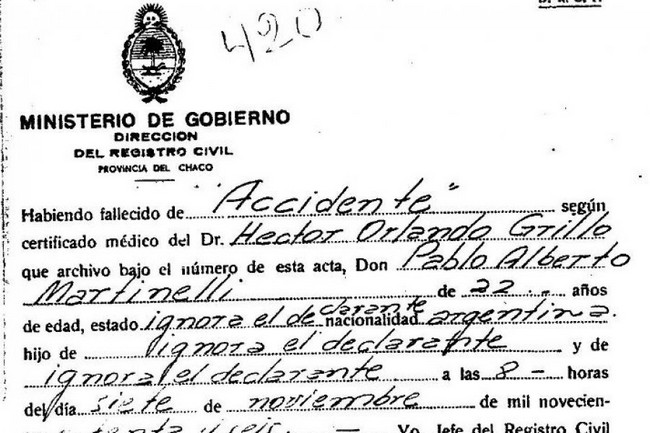 420
MINISTERIO DE GOBIERNO
DIRECCION
DEL REGISTRO CIVIL
PROVINCIA DEL CHACO
Habiendo fallecido de "Accidente" según
certificado médico del Dr. Hector Orlando Grillo
que archivo bajo el número de esta acta, Don Pablo Alberto
Martinelli de 22 años
de edad, estado ignora el declarante nacionalidad argentina.
hijo de ignora el declarante y de
ignora el declarante a las 8 - horas
del día siete de noviembre de mil novecien-
Yo, Jefe del Registro Civil